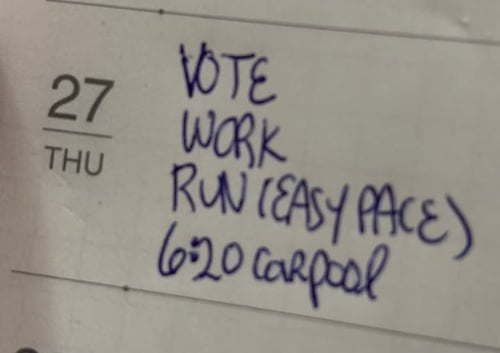 27
THU
VOTE
WORK
RUN (EASY PACE)
6:20 carpool